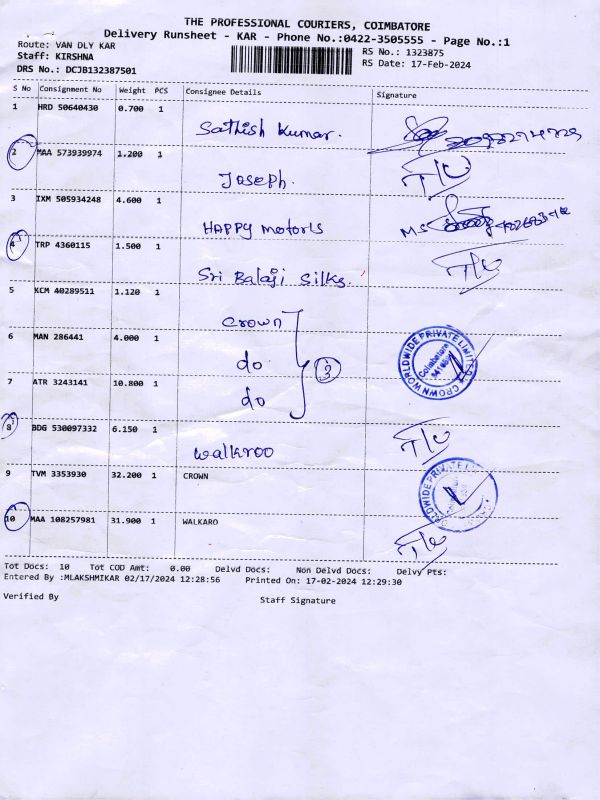 THE PROFESSIONAL COURIERS, COIMBATORE
Delivery Runsheet - KAR - Phone No.:0422-3505555 - Page No.:1
Route: VAN DLY KAR
RS No.: 1323875
Staff: KIRSHNA
RS Date: 17-Feb-2024
DRS No.: DCJB132387501
S No Consignment No Weight PCS Consignee Details Signature
1 HRD 50640430 0.700 1
Sathish Kumar.
2 MAA 573939974 1.200 1
Joseph. T/U
3 IXM 505934248 4.600 1
HAPPY Motorls MS
4 TRP 4360115 1.500 1
Sri Balaji Silks. T/U
5 KCM 40289511 1.120 1
Crown
6 MAN 286441 4.000 1
do 3
7 ATR 3243141 10.800 1
do
8 BDG 530097332 6.150 1
Walkroo T/U
9 TVM 3353930 32.200 1 CROWN
10 MAA 108257981 31.900 1 WALKARO
T/U
Tot Docs: 10 Tot COD Amt: 0.00 Delvd Docs: Non Delvd Docs: Delvy Pts:
Entered By :MLAKSHMIKAR 02/17/2024 12:28:56 Printed On: 17-02-2024 12:29:30
Verified By Staff Signature